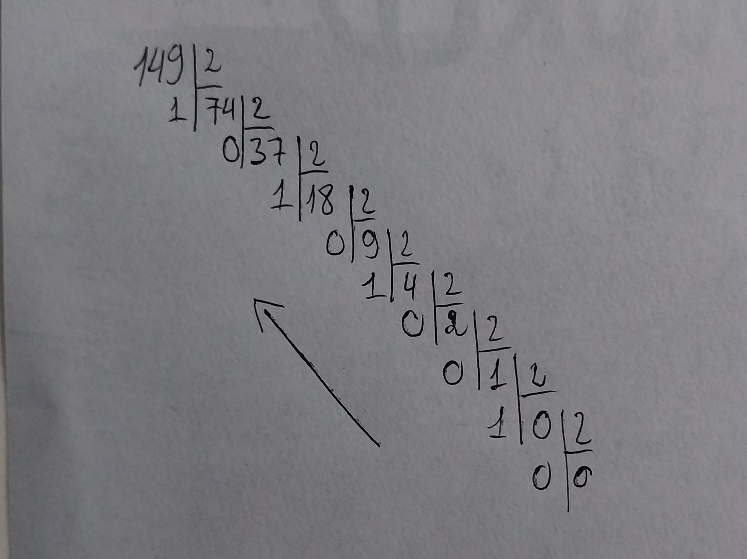 149 2
1 74 2
0 37 2
1 18 2
0 9 2
1 4 2
0 2 2
0 1 2
1 0 2
0 0